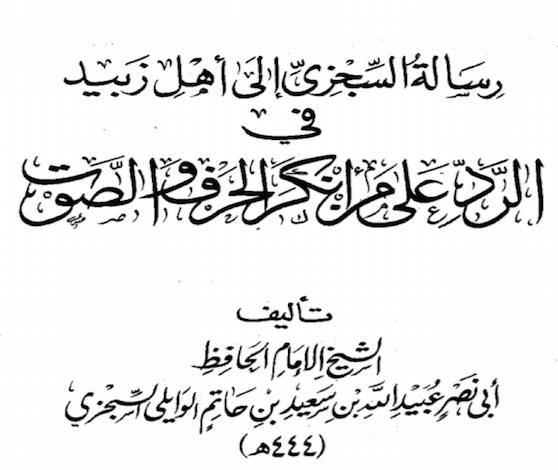 رسالة السجزي إلى أهل زبيد
في
الرد على من أنكر الحرف والصوت
تأليف
الشيخ الإمام الحافظ
أبي نصر عبيد الله بن سعيد بن حاتم الوايلي السجزي
(٤٤٤هـ)